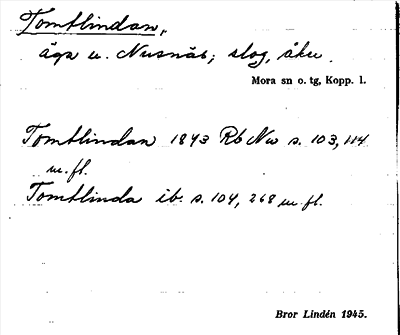 Tomtlindan,
äga u. Nusnäs; slog, åker.
Mora sn o. tg, Kopp. l.
Tomtlindan 1843 Rb Nu s. 103, 114
m. fl.
Tomtlinda ib. s. 104, 268 m. fl.
Bror Lindén 1945.